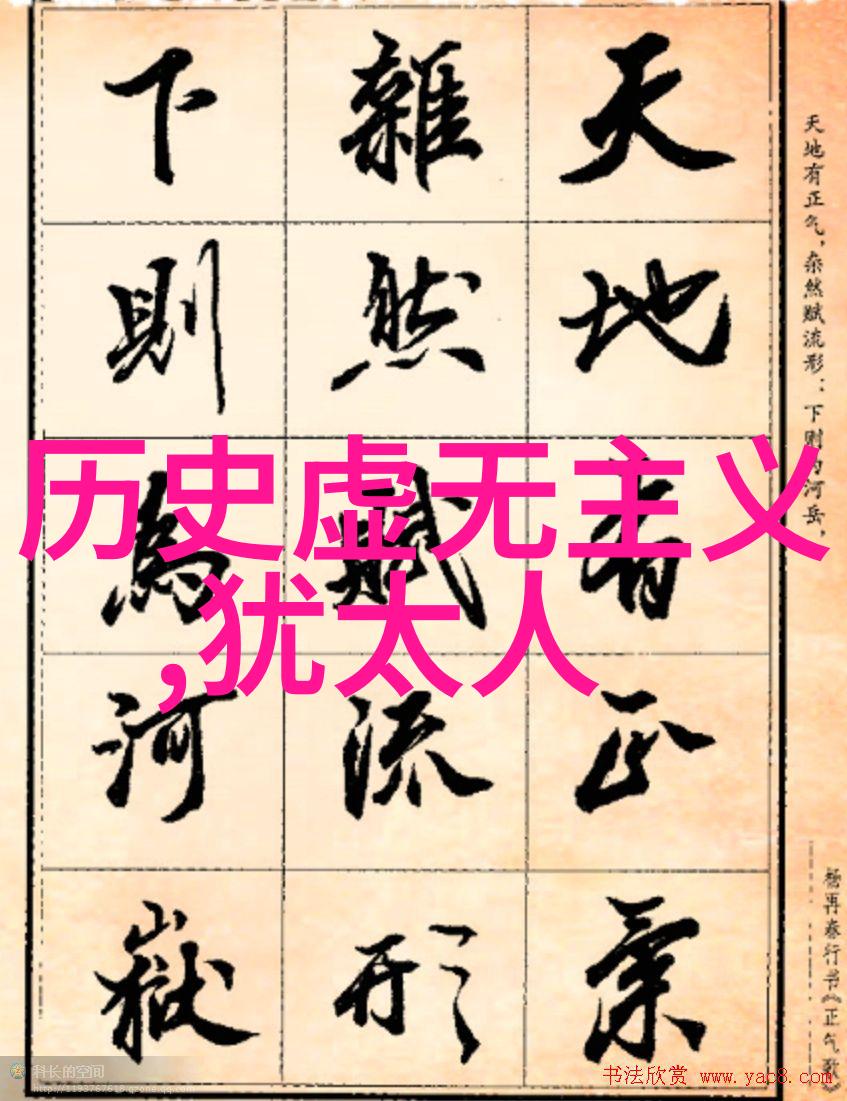 天地有正气，杂然赋流形：下则为河岳，
杨再春行书《正气歌》
天地有正氣
雜然賦流形
下則為河嶽
历史虚无主义
,犹太人
科长的空间
http://1193767618.qzone.qq.com
书法欣赏 www.yac8.com